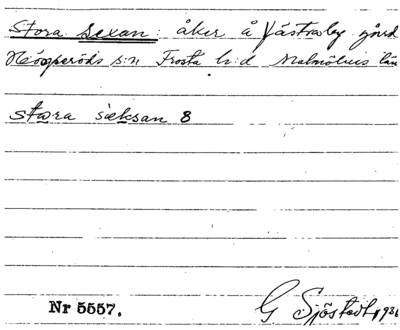 Stora Sexan: åker å Västraby gård
s:n Frosta h:d Malmöhus län
stora sæksan 8
Nr 5557. G Sjöstedt 1936